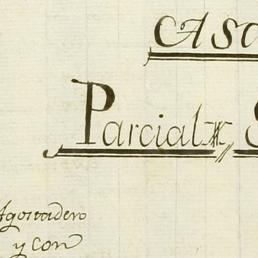 CASO
Parcial
Agostadero
y con